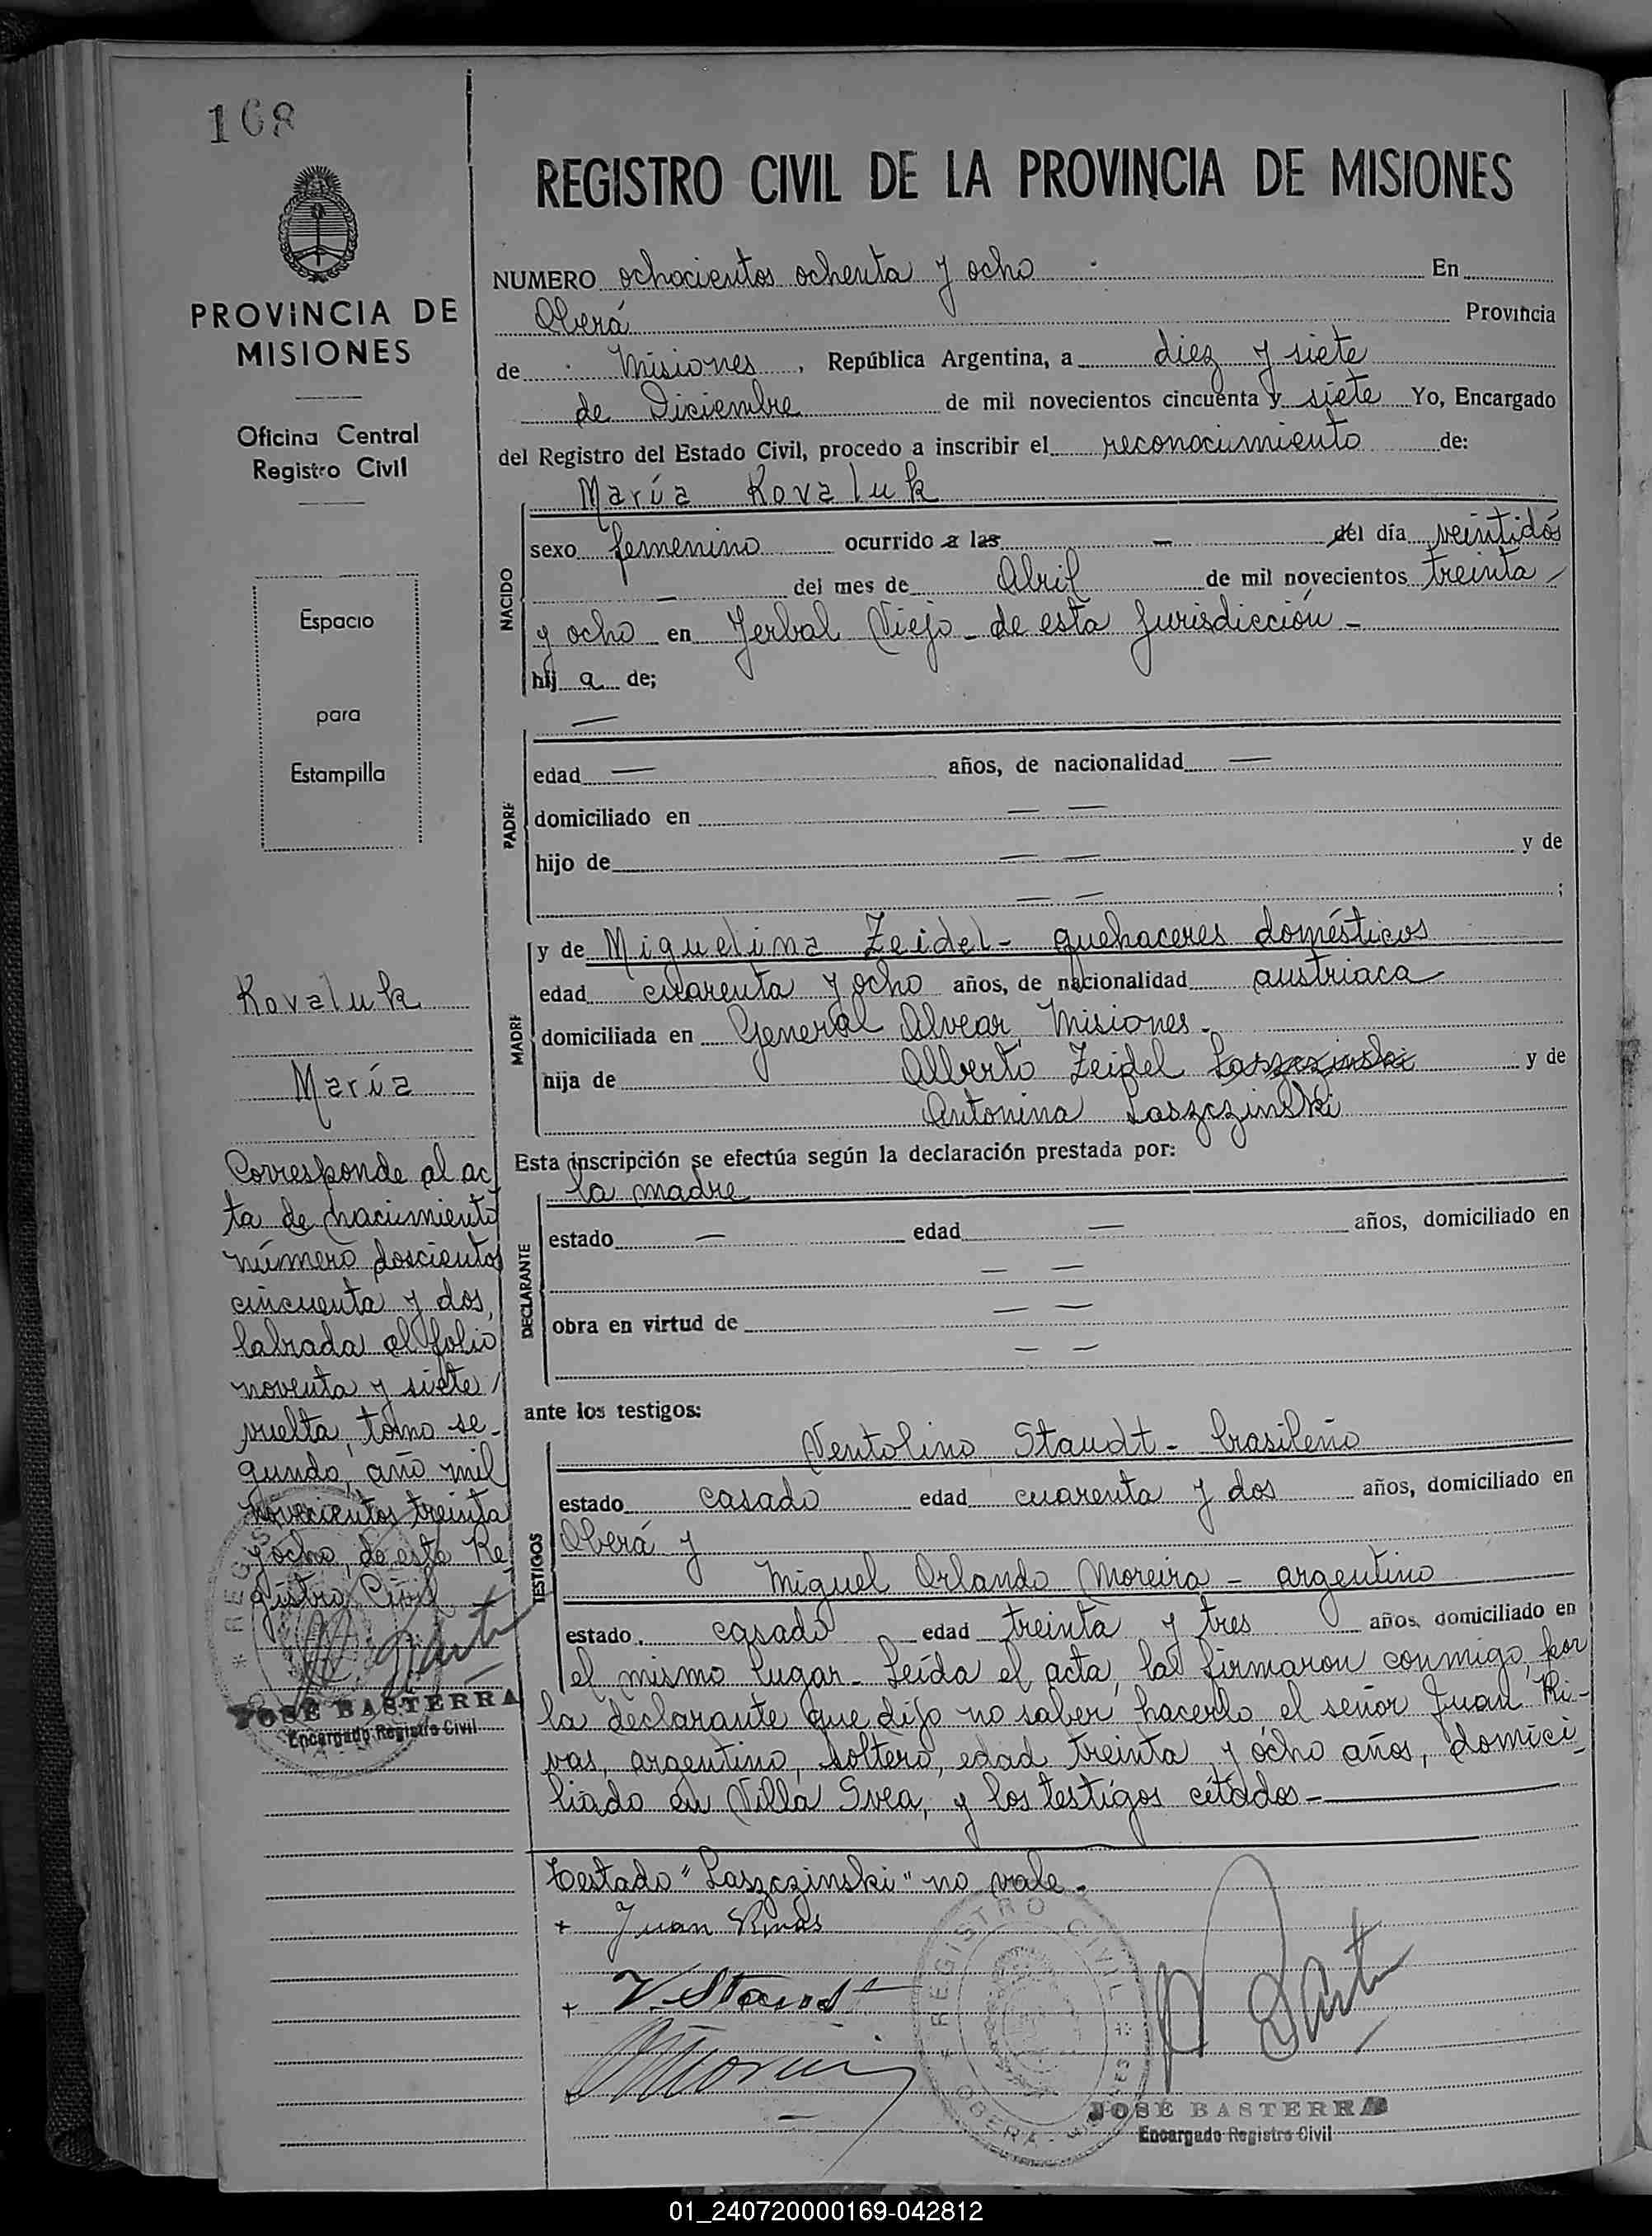 168
REGISTRO CIVIL DE LA PROVINCIA DE MISIONES
PROVINCIA DE
MISIONES
Oficina Central
Registro Civil
Espacio
para
Estampilla
NUMERO ochocientos ochenta y ocho En
Oberá Provincia
de Misiones, República Argentina, a diez y siete
de Diciembre de mil novecientos cincuenta y siete Yo, Encargado
del Registro del Estado Civil, procedo a inscribir el reconocimiento de:
María Kovaluk
NACIDO
sexo femenino ocurrido a las — del día veintidós
— del mes de Abril de mil novecientos treinta
y ocho en Yerbal Viejo - de esta Jurisdicción -
hij a de;
—
PADRE
edad — años, de nacionalidad —
domiciliado en — —
hijo de — — y de
— — ;
MADRE
y de Miguelina Zeidel - quehaceres domésticos
edad cuarenta y ocho años, de nacionalidad austriaca
domiciliada en General Alvear, Misiones -
hija de Alberto Zeidel Laszczinski y de
Antonina Laszczinski
Esta inscripción se efectúa según la declaración prestada por:
la madre
DECLARANTE
estado — edad — años, domiciliado en
— —
obra en virtud de — —
— —
ante los testigos:
TESTIGOS
Ventolino Staudt - brasileño
estado casado edad cuarenta y dos años, domiciliado en
Oberá y
Miguel Orlando Moreira - argentino
estado casado edad treinta y tres años, domiciliado en
el mismo lugar - Leída el acta, la firmaron conmigo, por
la declarante que dijo no saber hacerlo el señor Juan Ri-
vas, argentino, soltero, edad treinta y ocho años, domici-
liado en Villa Svea, y los testigos citados -
Testado "Laszczinski" no vale -
+ Juan Rivas
+ V. Staudt
REGISTRO CIVIL
OBERA
JOSÉ BASTERRA
Encargado Registro Civil
Kovaluk
María
Corresponde al ac
ta de nacimiento
número doscientos
cincuenta y dos,
labrada al folio
noventa y siete
vuelta, tomo se-
gundo, año mil
novecientos treinta
y ocho, de este Re
gistro Civil
JOSÉ BASTERRA
Encargado Registro Civil
01_240720000169-042812